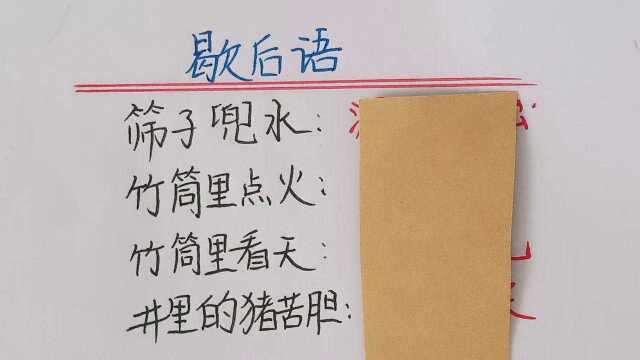 歇后语
筛子兜水：
竹筒里点火：
竹筒里看天：
井里的猪苦胆：